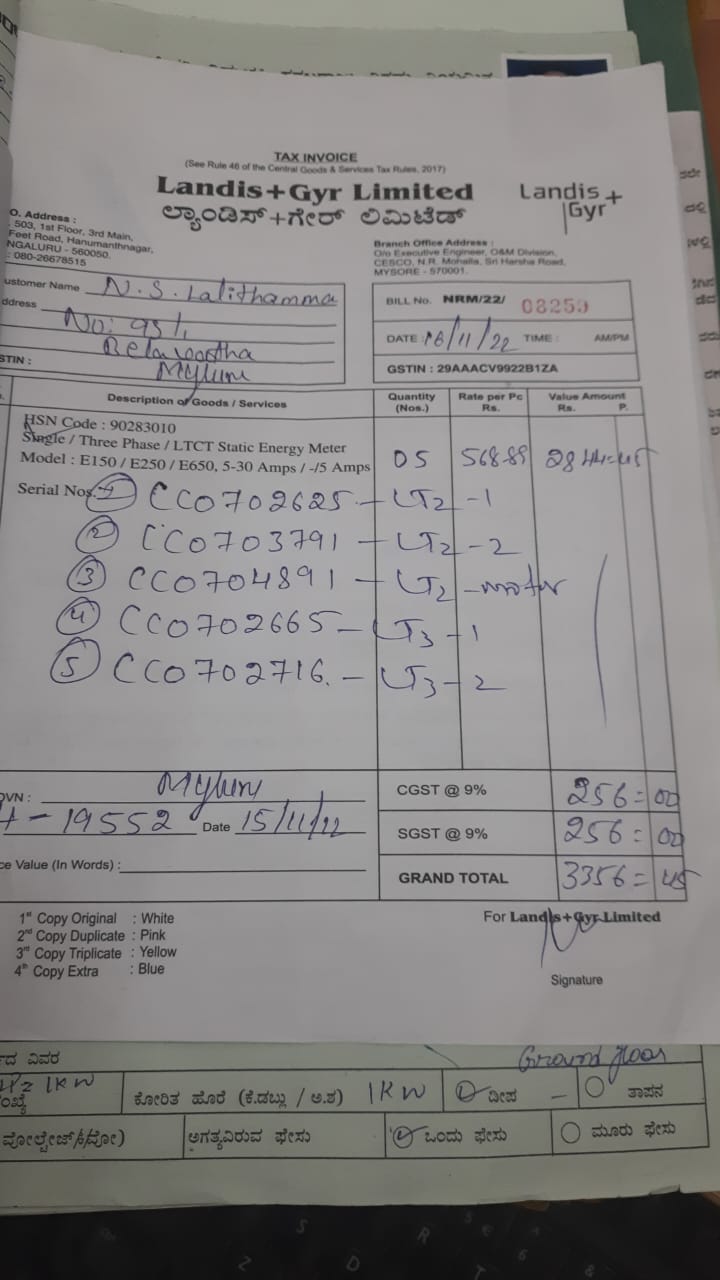 TAX INVOICE
(See Rule 46 of the Central Goods & Services Tax Rules, 2017)
Landis+Gyr Limited
ಲ್ಯಾಂಡಿಸ್+ಗೇರ್ ಲಿಮಿಟೆಡ್
Landis+
Gyr
O. Address :
503, 1st Floor, 3rd Main,
Feet Road, Hanumanthnagar,
NGALURU - 560050.
: 080-26678515
Branch Office Address :
O/o Executive Engineer, O&M Division,
CESCO, N.R. Mohalla, Sri Harsha Road,
MYSORE - 570001.
ustomer Name N.S. Lalithamma
ddress
No: 93/1,
STIN :
BILL No. NRM/22/ 08259
DATE : 16/11/22 TIME : AM/PM
GSTIN : 29AAACV9922B1ZA
Description of Goods / Services Quantity (Nos.) Rate per Pc Rs. Value Amount Rs. P.
HSN Code : 90283010
Single / Three Phase / LTCT Static Energy Meter
Model : E150 / E250 / E650, 5-30 Amps / -/5 Amps 05 568.89 2844=45
Serial Nos. 1 CC0702625 - LT2 - 1
2 CC0703791 - LT2 - 2
3 CC0704891 - LT2 - motor
4 CC0702665 - LT3 - 1
5 CC0702716. - LT3 - 2
OVN :
19552 Date 15/11/22
ce Value (In Words) :
CGST @ 9% 256=00
SGST @ 9% 256=00
GRAND TOTAL 3356=45
1st Copy Original : White
2nd Copy Duplicate : Pink
3rd Copy Triplicate : Yellow
4th Copy Extra : Blue
For Landis+Gyr Limited
Signature
ದ ವಿವರ Ground floor
1KW
ಂಖ್ಯೆ ಕೋರಿತ ಹೊರೆ (ಕೆ.ಡಬ್ಲು / ಅ.ಶ) 1KW ದೀಪ ತಾಪನ
ಅಗತ್ಯವಿರುವ ಫೇಸು ಒಂದು ಫೇಸು ಮೂರು ಫೇಸು